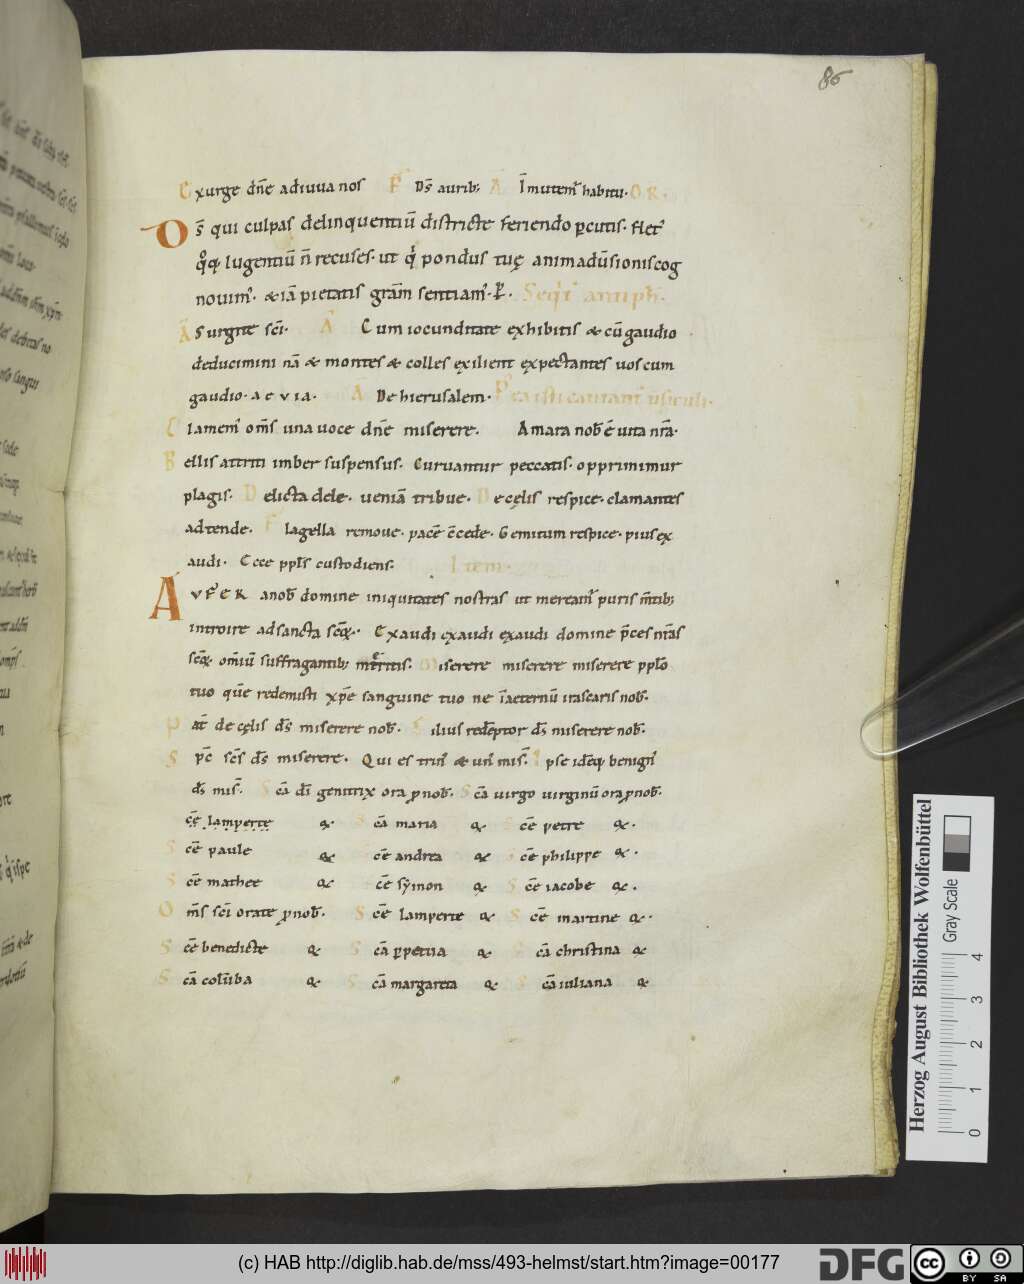 86
Exurge dn̄e adiuua nos P̄ Ds̄ aurib; A Īmutem̄ habitu. OR.
Ds̄ qui culpas delinquentiū districte feriendo p̱cutis. flet᷒
q̊q; lugentiū n̄ recuses. ut q̇ pondus tuę animadūsionis cog
nouim᷒. & iā pietatis grām sentiam᷒. P̱. Seq̄r antiph̄.
Ā Surgite sc̄i. Ā Cum iocunditate exhibitis & cū gaudio
deducimini nā & montes & colles exilient expectantes uos cum
gaudio. a e v i a. Ā De hierusalem.
Clamem᷒ om̄s una uoce dn̄e miserere. Amara nob̄ ē uita nr̄a.
Bellis attriti imber suspensus. Curuantur peccatis. opprimimur
plagis. Delicta dele. ueniā tribue. De cęlis respice. clamantes
adtende. Flagella remoue. pacē c̄cede. Gemitum respice. pius ex
audi. Ecce ppl̄s custodiens. Item.
AVFER a nob̄ domine iniquitates nostras ut meream᷒ puris m̄tib;
introire ad sancta sc̄oꝝ. Exaudi exaudi exaudi domine p̄ces nr̄as
sc̄oꝝ om̄iū suffragantib; meritis. Miserere miserere miserere pplo
tuo quē redemisti xp̄e sanguine tuo ne īaeternū irascaris nob̄.
Pat̄ de cęlis ds̄ miserere nob̄. Filius redēptor ds̄ miserere nob̄.
Sp̄c sc̄s ds̄ miserere. Qui es trin᷒ & un᷒ mis̄. Ipse idēq; benign᷒
ds̄ mis̄. Scā dī genitrix ora ꝓ nob̄. Scā uirgo uirginū ora ꝓ nob̄.
sc̄e lamperte &. Scā maria & Sc̄e petre &.
Sc̄e paule & sc̄e andrea & Sc̄e philippe &.
Sc̄e mathee & sc̄e symon & Sc̄e iacobe &.
Om̄s sc̄i orate ꝓ nob̄. Sc̄e lamperte & Sc̄e martine &.
Sc̄e benedicte & Scā ꝑpetua & Scā christina &
Scā colūba & Scā margareta & Scā iuliana &
Herzog August Bibliothek Wolfenbüttel
Gray Scale
0 1 2 3 4
(c) HAB http://diglib.hab.de/mss/493-helmst/start.htm?image=00177
DFG
cc BY SA